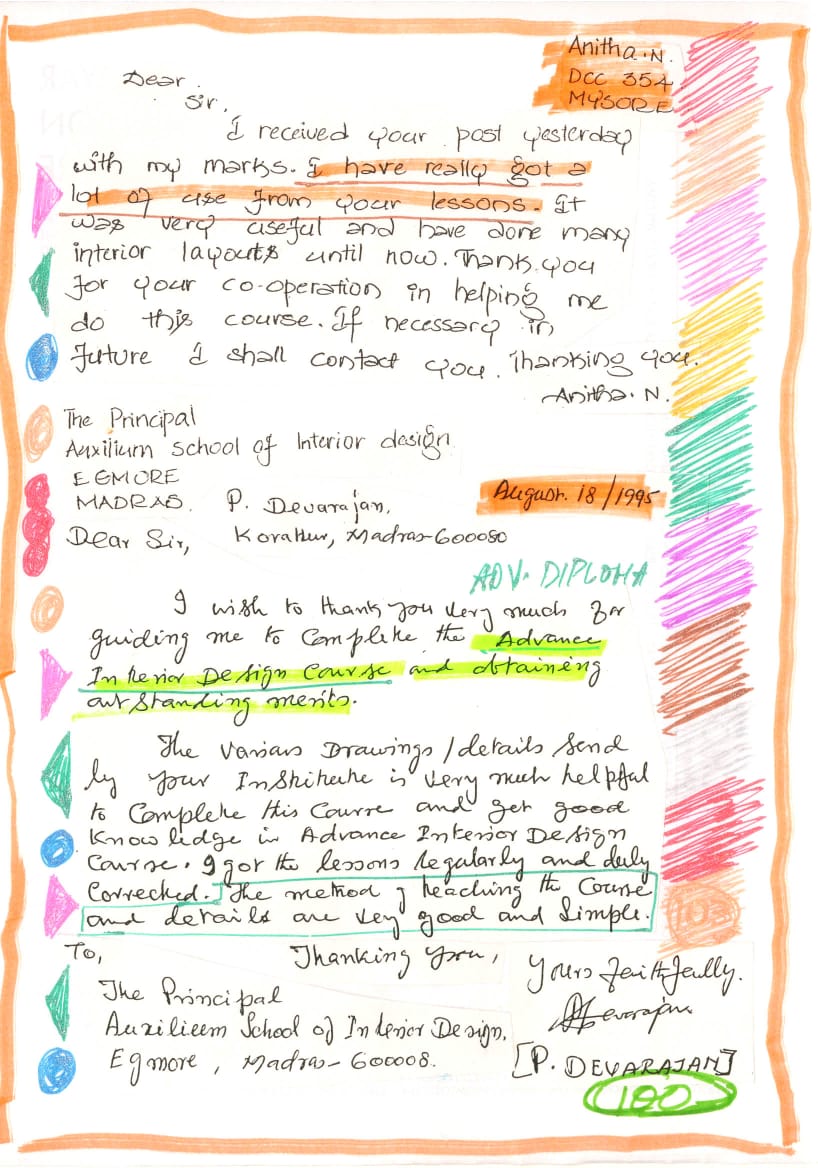 Anitha.N.
DCC 354
MYSORE
Dear
Sir,
I received your post yesterday
with my marks. I have really got a
lot of use from your lessons. It
was very useful and have done many
interior layouts until now. Thank you
for your co-operation in helping me
do this course. If necessary in
future I shall contact you. Thanking you.
Anitha. N.
The Principal
Auxilium School of Interior design
EGMORE
MADRAS.
P. Devarajan,
August. 18/1995
Dear Sir,
Korattur, Madras-600080
ADV. DIPLOMA
I wish to thank you very much for
guiding me to Complete the Advance
Interior Design Course and obtaining
outstanding merits.
The Various Drawings/details Send
by your Institute is very much helpful
to Complete this Course and get good
Knowledge in Advance Interior Design
Course. I got the lessons regularly and duly
Corrected. The method of teaching the Course
and details are very good and Simple.
To,
Thanking you,
Yours faithfully.
The Principal
Auxilium School of Interior Design,
Egmore, Madras-600008.
[P. DEVARAJAN]
100